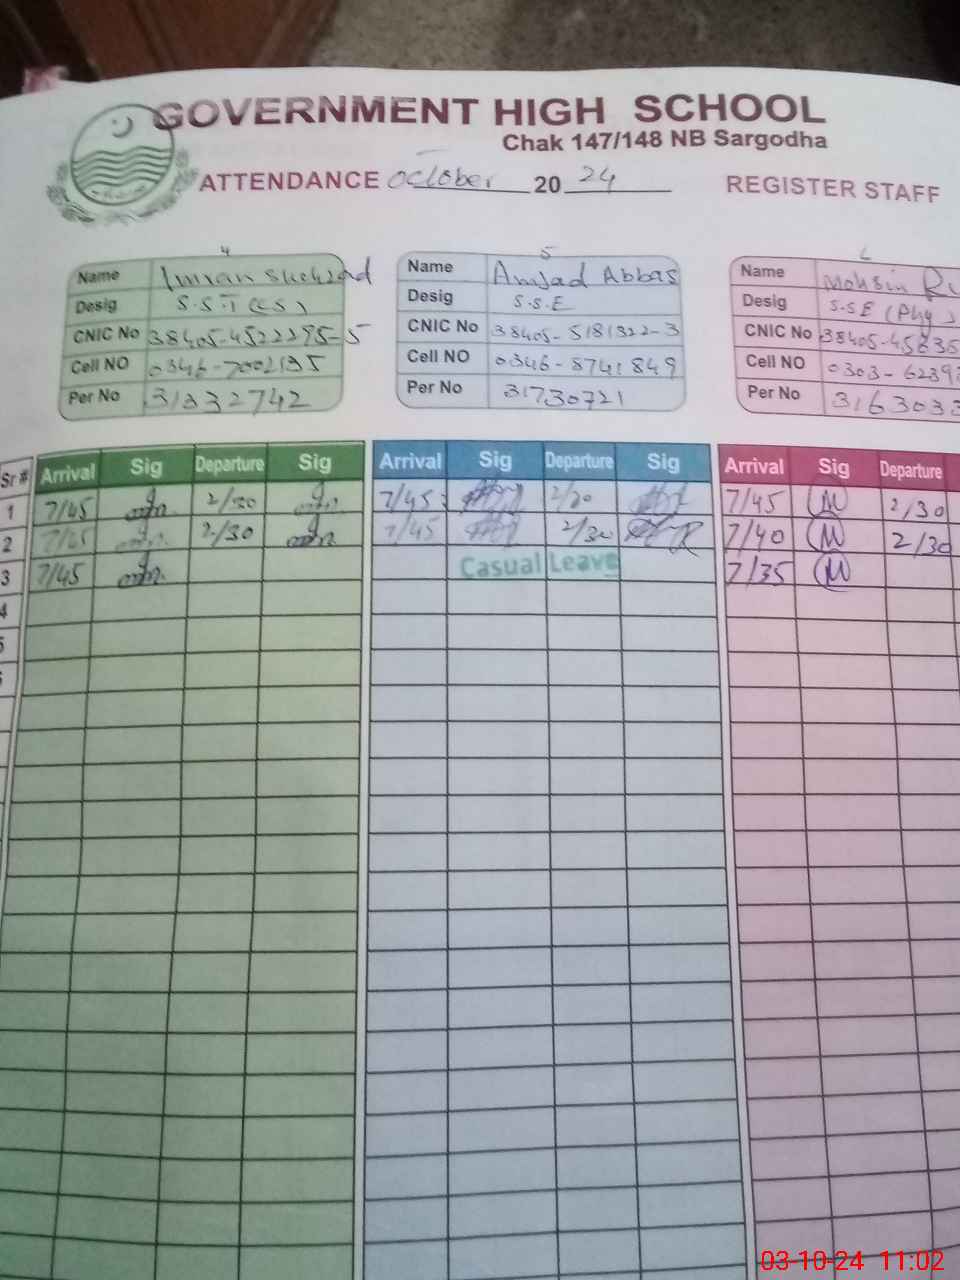 GOVERNMENT HIGH SCHOOL
Chak 147/148 NB Sargodha
ATTENDANCE October 2024 REGISTER STAFF
4
Name Imran Shehzad
Desig S.S.T (CS)
CNIC No 38405-4522295-5
Cell NO 0346-7002135
Per No 31332742
5
Name Amjad Abbas
Desig S.S.E
CNIC No 38405-5181322-3
Cell NO 0346-8741849
Per No 31730721
Name Mohsin
Desig S.S.E (Phy)
CNIC No 38405-45835
Cell NO 0303-6239
Per No 316303
Sr # Arrival Sig Departure Sig Arrival Sig Departure Sig Arrival Sig Departure
1 7/45 2/30 7/45 2/30 7/45 M 2/30
2 7/45 2/30 7/45 2/30 7/40 M 2/30
3 7/45 Casual Leave 7/35 M
4
5
03-10-24 11:02